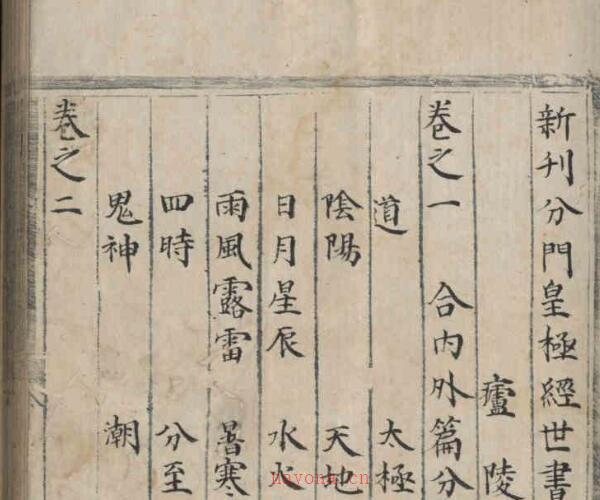 新刊分門皇極經世書
廬陵
卷之一 合內外篇分
道 太極
陰陽 天地
日月星辰 水火
雨風露雷 暑寒
四時 分至
鬼神 潮
卷之二